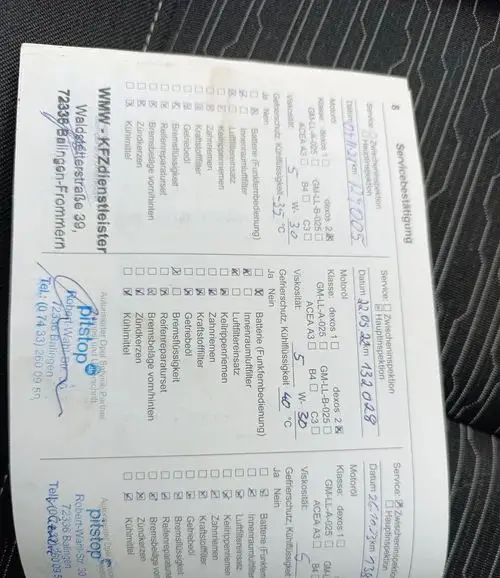 8
Servicebestätigung
Service: Zwischeninspektion
Hauptinspektion
Datum km 129005
Motoröl
Klasse: dexos 1 dexos 2
GM-LL-A-025 GM-LL-B-025
ACEA A3 B4 C3
Viskosität: 5 W- 30
Gefrierschutz, Kühlflüssigkeit -35 °C
Ja Nein
Batterie (Funkfernbedienung)
Innenraumluftfilter
Luftfiltereinsatz
Keilrippenriemen
Zahnriemen
Kraftstofffilter
Getriebeöl
Bremsflüssigkeit
Reifenreparaturset
Bremsbeläge vorn/hinten
Zündkerzen
Kühlmittel
WMW - KFZdienstleister
Waldstetterstraße 39,
72336 Balingen-Frommern
Service: Zwischeninspektion
Hauptinspektion
Datum 22.05.22 km 132028
Motoröl
Klasse: dexos 1 dexos 2
GM-LL-A-025 GM-LL-B-025
ACEA A3 B4 C3
Viskosität: 5 W- 30
Gefrierschutz, Kühlflüssigkeit 40 °C
Ja Nein
Batterie (Funkfernbedienung)
Innenraumluftfilter
Luftfiltereinsatz
Keilrippenriemen
Zahnriemen
Kraftstofffilter
Getriebeöl
Bremsflüssigkeit
Reifenreparaturset
Bremsbeläge vorn/hinten
Zündkerzen
Kühlmittel
Automeister Opel Service Partner
pitstop
72336 Balingen
Tel.: (07433) 260 09 50
Service: Zwischeninspektion
Hauptinspektion
Datum km
Motoröl
Klasse: dexos 1
GM-LL-A-025
ACEA A3 B4
Viskosität: 5
Gefrierschutz, Kühlflüssigkeit
Ja Nein
Batterie
Innenraumluftfilter
Luftfiltereinsatz
Keilrippenriemen
Zahnriemen
Kraftstofffilter
Getriebeöl
Bremsflüssigkeit
Reifenreparaturset
Bremsbeläge
Zündkerzen
Kühlmittel
pitstop
72336 Balingen